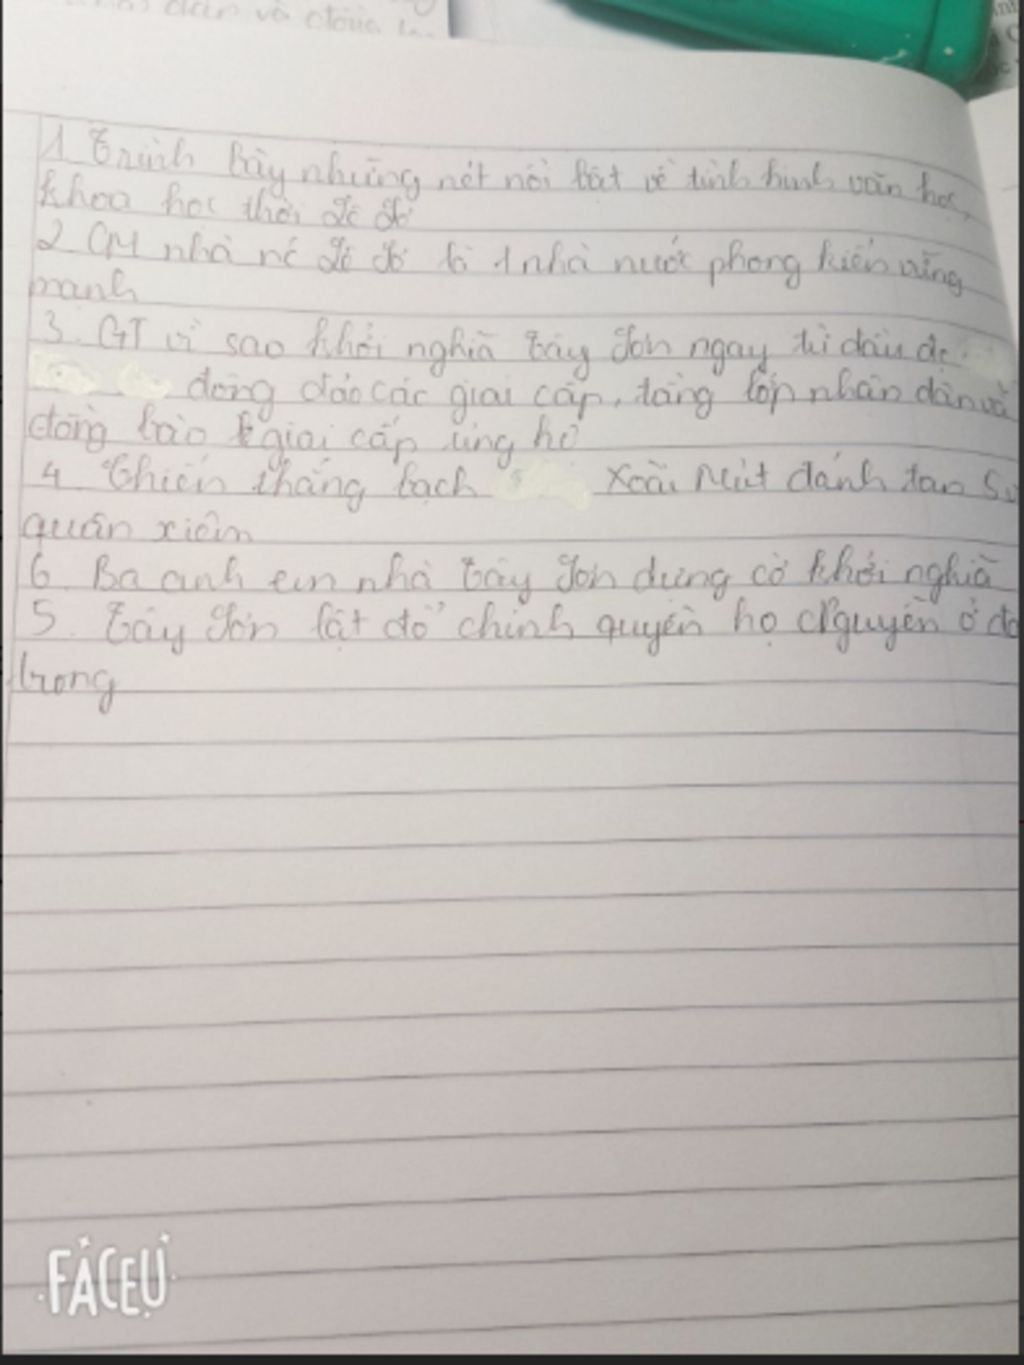 dân và đồng
1 Trình bày những nét nổi bật về tình hình văn học,
khoa học thời Lê Sơ
2 CM nhà nc Lê Sơ là 1 nhà nước phong kiến vững
mạnh
3. GT vì sao khởi nghĩa Tây Sơn ngay từ đầu đc
đông đảo các giai cấp, tầng lớp nhân dân và
đồng bào giai cấp ủng hộ
4 Chiến thắng Rạch Xoài Mút đánh tan 5
quân xiêm
6 Ba anh em nhà Tây Sơn dựng cờ khởi nghĩa
5. Tây Sơn lật đổ chính quyền họ Nguyễn ở
trong
FACEU